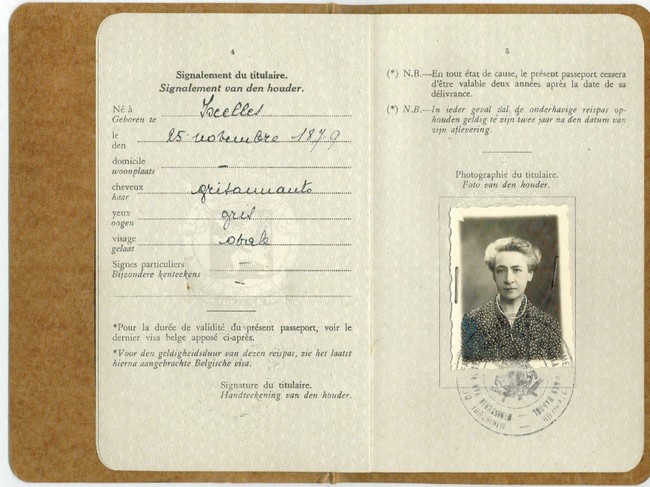 4
Signalement du titulaire.
Signalement van den houder.
Né à
Geboren te
Ixelles
le
den
25 novembre 1879
domicile
woonplaats
—
cheveux
haar
grisonnants
yeux
oogen
gris
visage
gelaat
ovale
Signes particuliers
Bijzondere kenteekens
—
—
*Pour la durée de validité du présent passeport, voir le
dernier visa belge apposé ci-après.
*Voor den geldigheidsduur van dezen reispas, zie het laatst
hierna aangebrachte Belgische visa.
Signature du titulaire.
Handteekening van den houder.
5
(*) N.B.—En tout état de cause, le présent passeport cessera
d'être valable deux années après la date de sa
délivrance.
(*) N.B.—In ieder geval zal de onderhavige reispas op-
houden geldig te zijn twee jaar na den datum van
zijn aflevering.
Photographie du titulaire.
Foto van den houder.